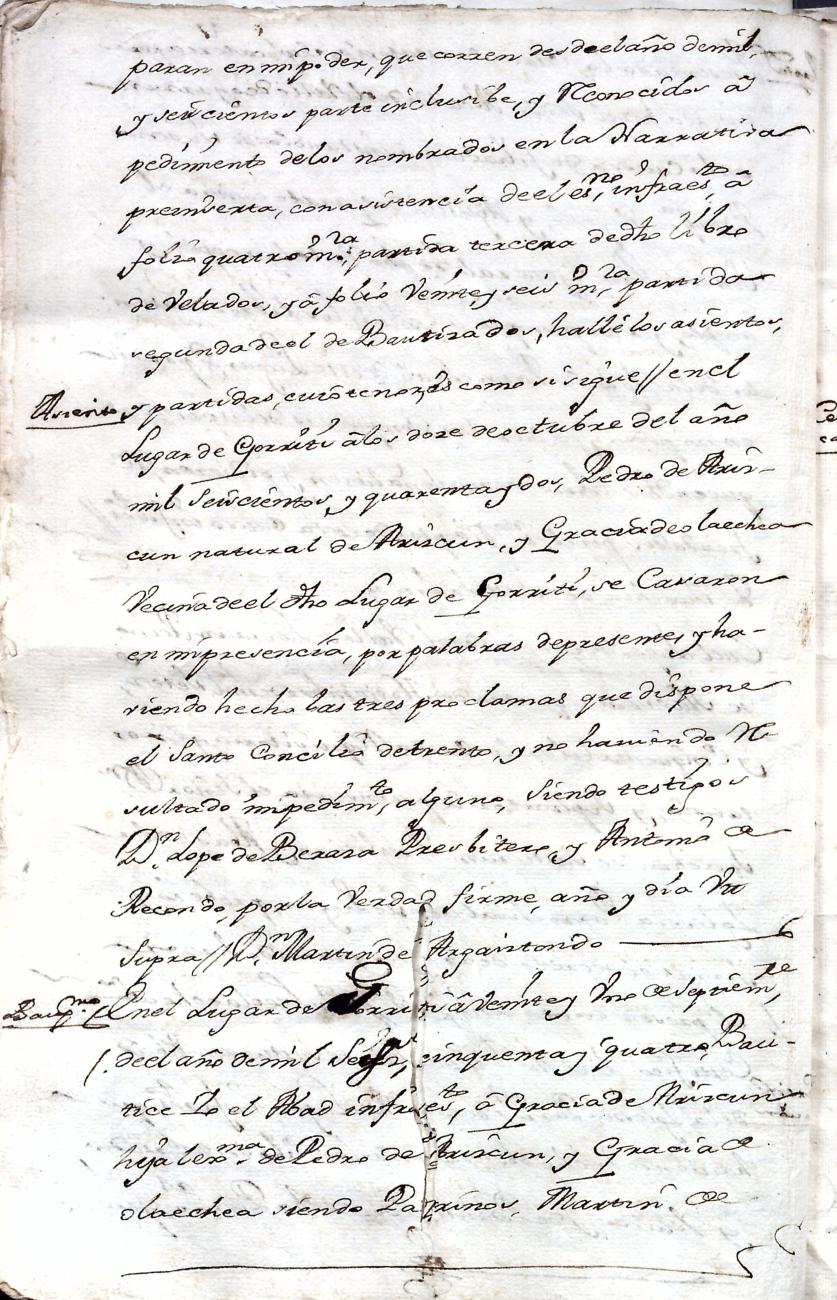 paran en mi poder, que corren desde el año de mil,
y seiscientos parte inclusibe, y Reconocidos â
pedimento de los nombrados en la Narrativa
preinserta, con asistencia de el es.no infraes.to, â
folio quatro m.ra, partida tercera de dho libro
de Velados, y â folio Veinte, y seis m.ra, partida
segunda de el de Bautizados, hallé los asientos,
Asiento y partidas, cuio tenor es como sisigue // en el
Lugar de Gorriti â los doze de octubre del año
mil seiscientos, y quarenta y dos, Pedro de Aris-
cun natural de Ariscun, y Gracia de olaechea
Vecina de el dho Lugar de Gorriti, se Casaron
en mi presencia, por palabras de presente, y ha-
viendo hecho las tres proclamas que dispone
el Santo Concilio de trento, y no haviendo Re-
sultado impedim.to, alguno, Siendo testigos
D.n Lope de Beraza Presbitero, y Antonio de
Recondo, por la Verdad firme, año y dia Vt
Supra // D.n Martin de Argaistondo
Baup.mo En el Lugar de Gorriti â Veinte y Vno de Septiem.re,
de el año de mil Seis.os, cinquenta y quatro, Bau-
tice Yo el Abad infraes.to, â Gracia de Ariscun
hija lex.ma de Pedro de Ariscun, y Gracia de
olaechea siendo Padrinos, Martin de